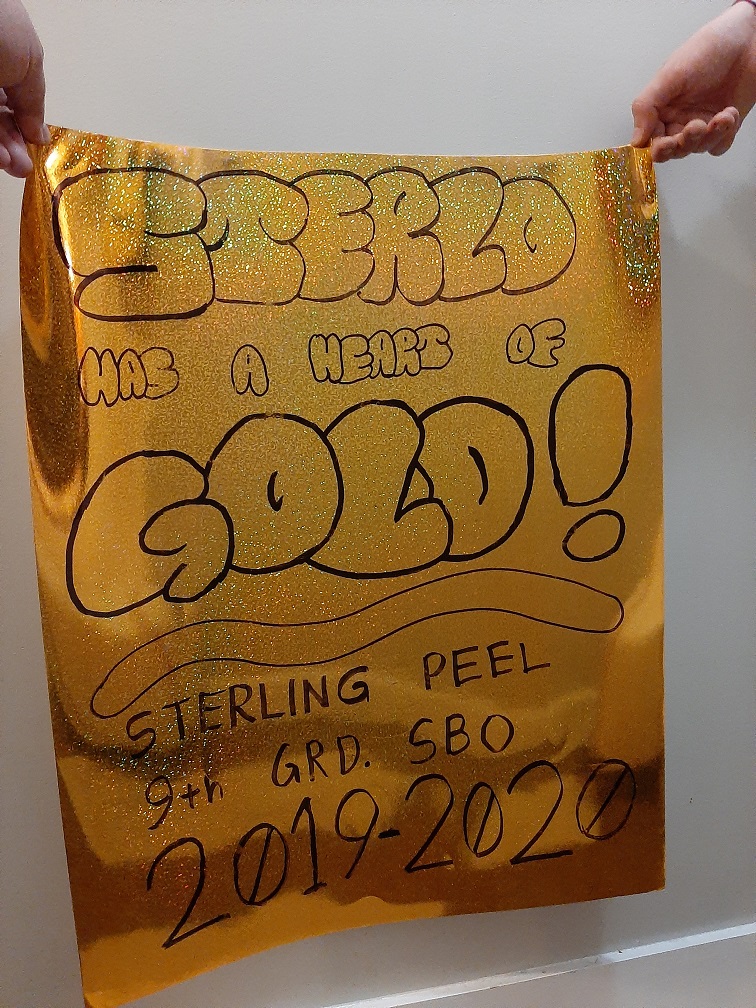 HAS A HEART OF
GOLD!
STERLING PEEL
9th GRD. SBO
2019-2020